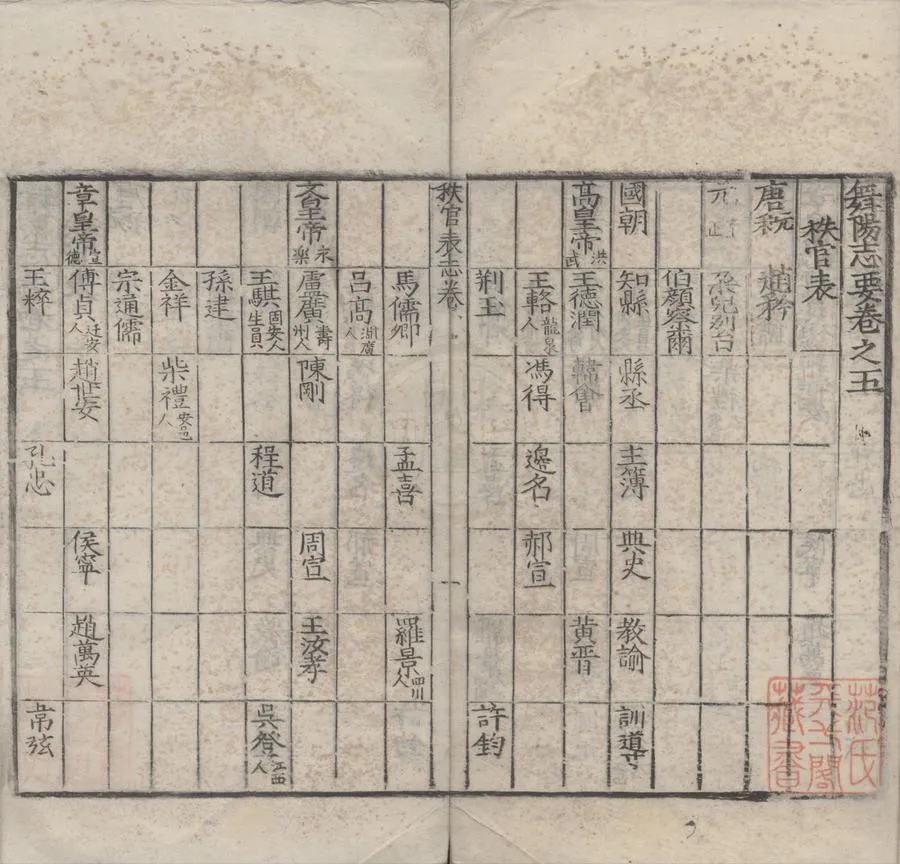 舞陽志要卷之五
秩官表
唐
趙矜
元
伯顏察爾
國朝
知縣 縣丞 主簿 典史 教諭 訓導
高皇帝 洪武
王德潤 韓會 黃晋
王輅 龍泉人 馮得 邊名 郝宣
剃玉 許鈞
秩官表志卷
一
馬儒卿 孟喜 羅景 四川人
呂高 湖廣人
文皇帝 永樂
盧廣 壽州人 陳剛 周宣 王汝孝
王騏 固安人生員 程道 吳登 江西人
孫建
金祥 柴禮 安邑人
宗通儒
章皇帝 宣德
傅貞 迁安人 趙世安 侯寧 趙萬英
王粹 孔忠 常弦
范氏天一閣藏書